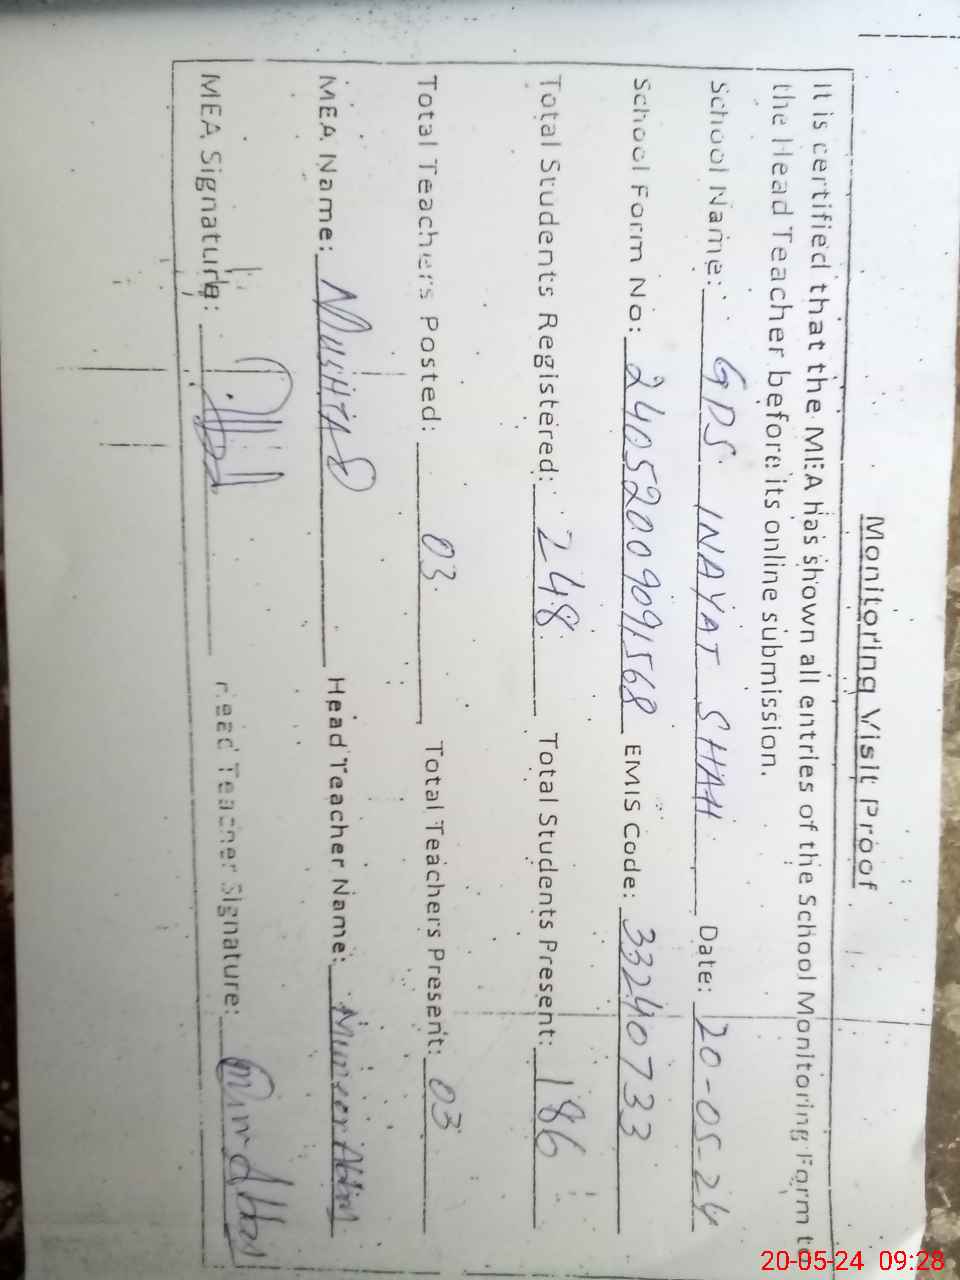 Monitoring Visit Proof
It is certified that the MEA has shown all entries of the School Monitoring Form to
the Head Teacher before its online submission.
School Name: GPS INAYAT SHAH Date: 20-05-24
School Form No: 24052009091568 EMIS Code: 33240733
Total Students Registered: 248 Total Students Present: 186
Total Teachers Posted: 03 Total Teachers Present: 03
MEA Name: MUSHTAQ Head Teacher Name:
MEA Signature: Head Teacher Signature:
20-05-24 09:28